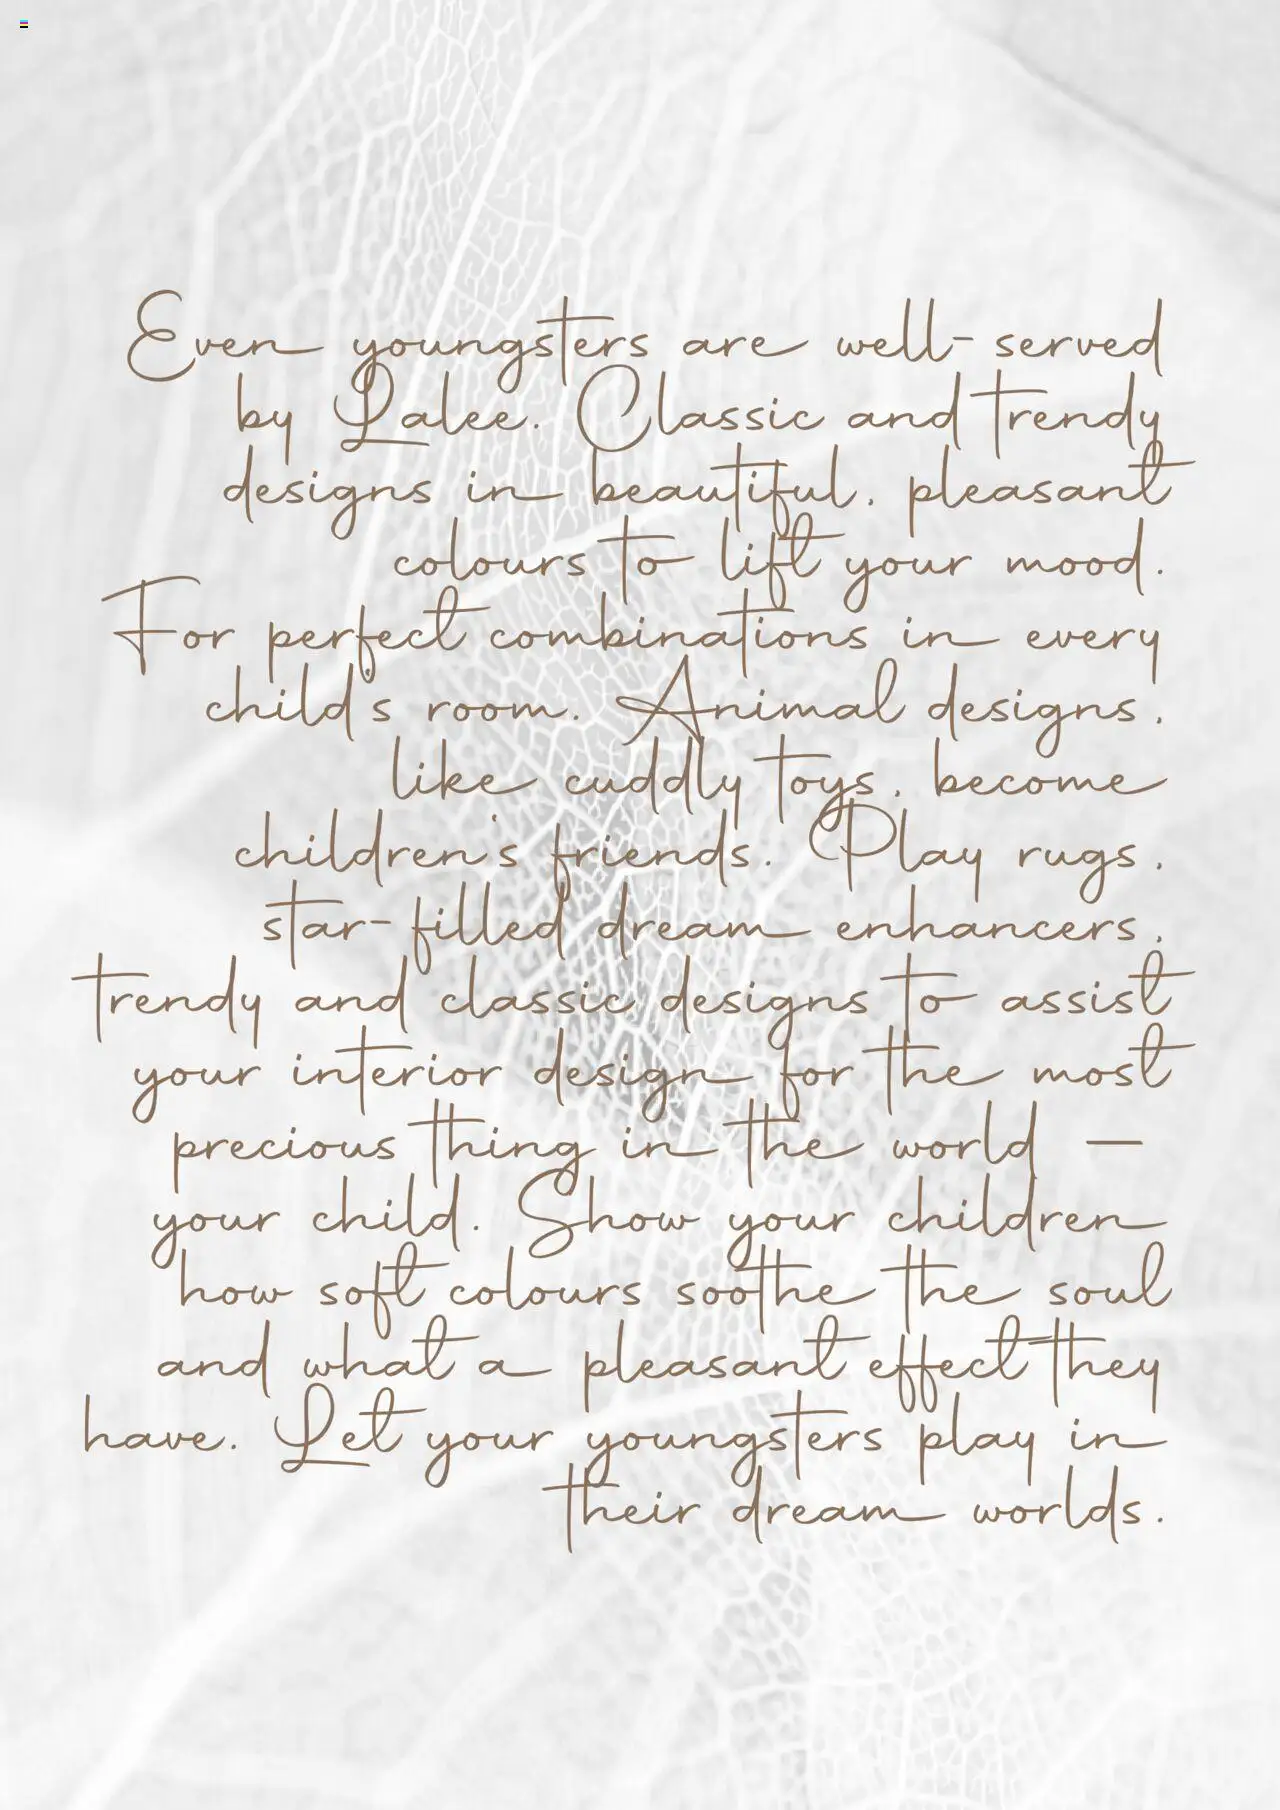 Even youngsters are well-served
by Lalee. Classic and trendy
designs in beautiful, pleasant
colours to lift your mood.
For perfect combinations in every
child's room. Animal designs,
like cuddly toys, become
children's friends. Play rugs,
star-filled dream enhancers,
trendy and classic designs to assist
your interior design for the most
precious thing in the world —
your child. Show your children
how soft colours soothe the soul
and what a pleasant effect they
have. Let your youngsters play in
their dream worlds.